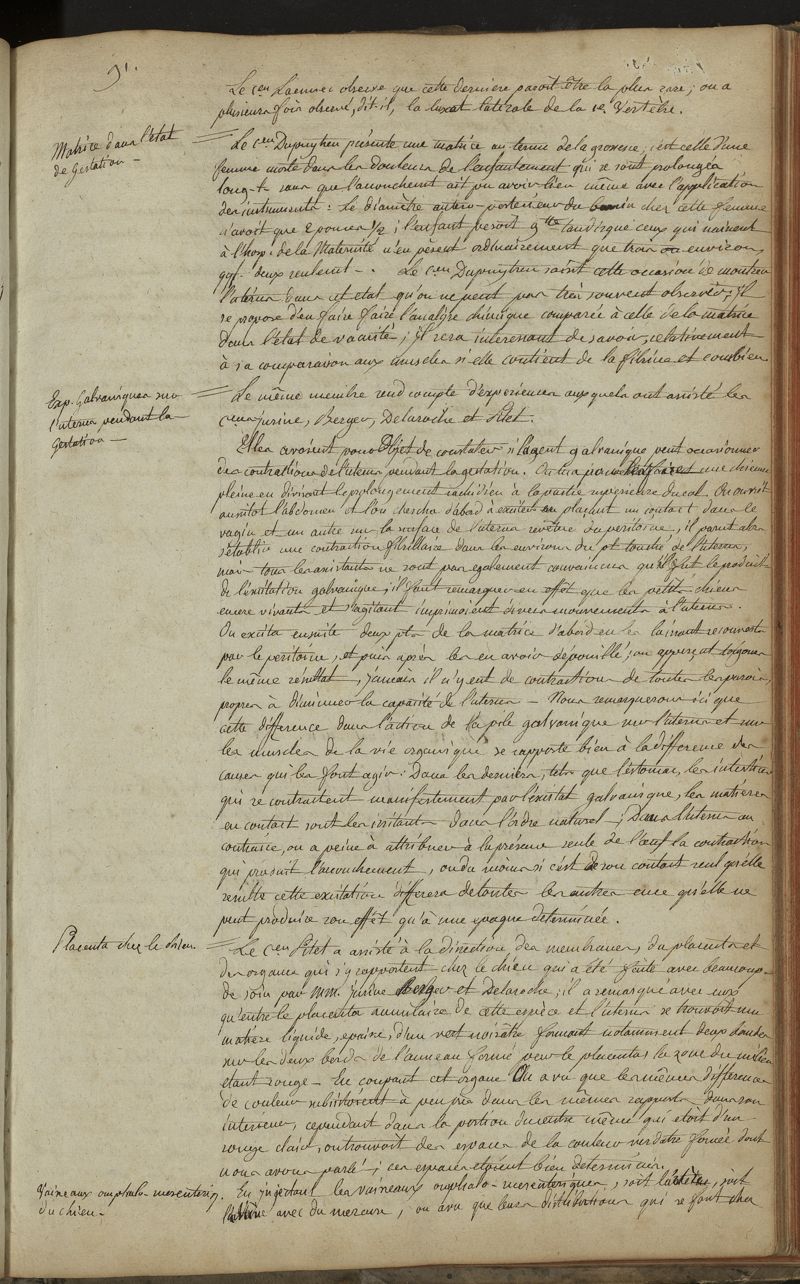 91.
Le cen Laennec observe que cette derniere paroit être la plus rare; on a
plusieurs fois observé, dit-il, la luxat latérale de la 1e Vertèbre.
Matrice dans l'état
de Gestation —
Le cen Dupuytren présente une matrice au terme de la grossesse; c'est celle d'une
femme morte dans les douleurs de l'enfantement qui se sont prolongés
long-t sans que l'accouchemt ait pu avoir lieu même avec l'application
des instruments: le diamètre antero-posterieur du bassin chez cette femme
n'avoit que 2 pouces 1/2; l'enfant pesoit 9 tandisque ceux qui naissent
à l'hosp. de la Maternité n'en pèsent ordinairement que trois ou environ,
qqf. deux seulemt —. Le cen Dupuytren saisit cette occasion de montrer
l'uterus dans cet etat qu'on ne peut pas très souvent observer; Il
se propose d'en faire faire l'analyse chimique comparée à celle de la matrice
dans l'état de vacuité; il sera interessant de savoir, relativement
à sa comparaison aux muscles si elle contient de la fibrine et combien.
Exp. Galvaniques sur
l'uterus pendant la
gestation —
Le même membre rend compte d'experiences auxquels ont assisté les
cens Jurine, Berger, Delaroche et Itet.
Elles avoient pour Objet de constater si l'agent galvanique peut occasionner
des contractions de l'uterus pendant la gestation. On tua une chienne
pleine en divisant le prolongement rachidien à la partie superieure du col. On ouvrit
aussitot l'abdomen et l'on chercha d'abord à exciter en plaçant un contact dans le
vagin et un autre sur la surface de l'uterus revêtue du peritoine, il parut alors
s'établir une contraction fibrillaire dans les environs du pt touché de l'uterus,
mais tous les assistants ne sont pas egalement convaincus qu'il fut le produit
de l'excitation galvanique; il faut remarquer en effet que les petits chiens
encore vivants et s'agitant imprimoient divers mouvements à l'uterus.
On excita ensuite deux pts de la matrice d'abord en les laissant recouverts
par le peritoine, et puis après les en avoir depouillé; on apperçut toujours
le même résultat, jamais il n'y eut de contractions de toutes les parois,
propres à diminuer la capacité de l'uterus — Nous remarquerons ici que
cette difference dans l'action de la pile galvanique sur l'uterus et sur
les muscles de la vie organique se rapporte bien à la difference des
causes qui les font agir: Dans les derniers, tels que l'estomac, les intestins
qui se contractent manifestement par l'excitat galvanique, les matières
en contact sont les irritants dans l'ordre naturel; Dans l'uterus au
contraire, on a peine à attribuer à la présence seule de l'œuf la contraction
qui produit l'accouchement, ou du moins si c'est de son contact seul qu'elle
resulte cette excitation differera de toutes les autres en ce qu'elle ne
peut produire son effet qu'à une epoque déterminée.
Placenta chez le chien.
Le cen Itet a assisté à la direction des membranes, du placenta et
des organes qui s'y rapportent chez le chien qui a été faite avec beaucoup
de soin par MM. Jurine Berger et Delaroche; il a remarqué avec eux
qu'entre le placenta annulaire de cette espèce et l'uterus se trouvoit une
matière liquide, epaisse, d'un vert noirâtre formant notamment deux bandes
sur les deux bords de l'anneau formé par le placenta, la zone du milieu
etant rouge — En coupant cet organe On a vu que les mêmes differences
de couleur subsistoient à peu près dans les mêmes rapports dans son
interieur, cependant dans la portion du centre même qui etoit d'un
rouge clair, on trouvoit des espaces de la couleur verdatre foncée dont
nous avons parlé; ces espaces etoient bien determinés.
Vaisseaux omphalo-mesenteriq.
du chien —
En injectant les vaisseaux omphalo-mesenteriques, soit l'artère, soit
la veine avec du mercure, on a vu que leurs distributions qui se font chez